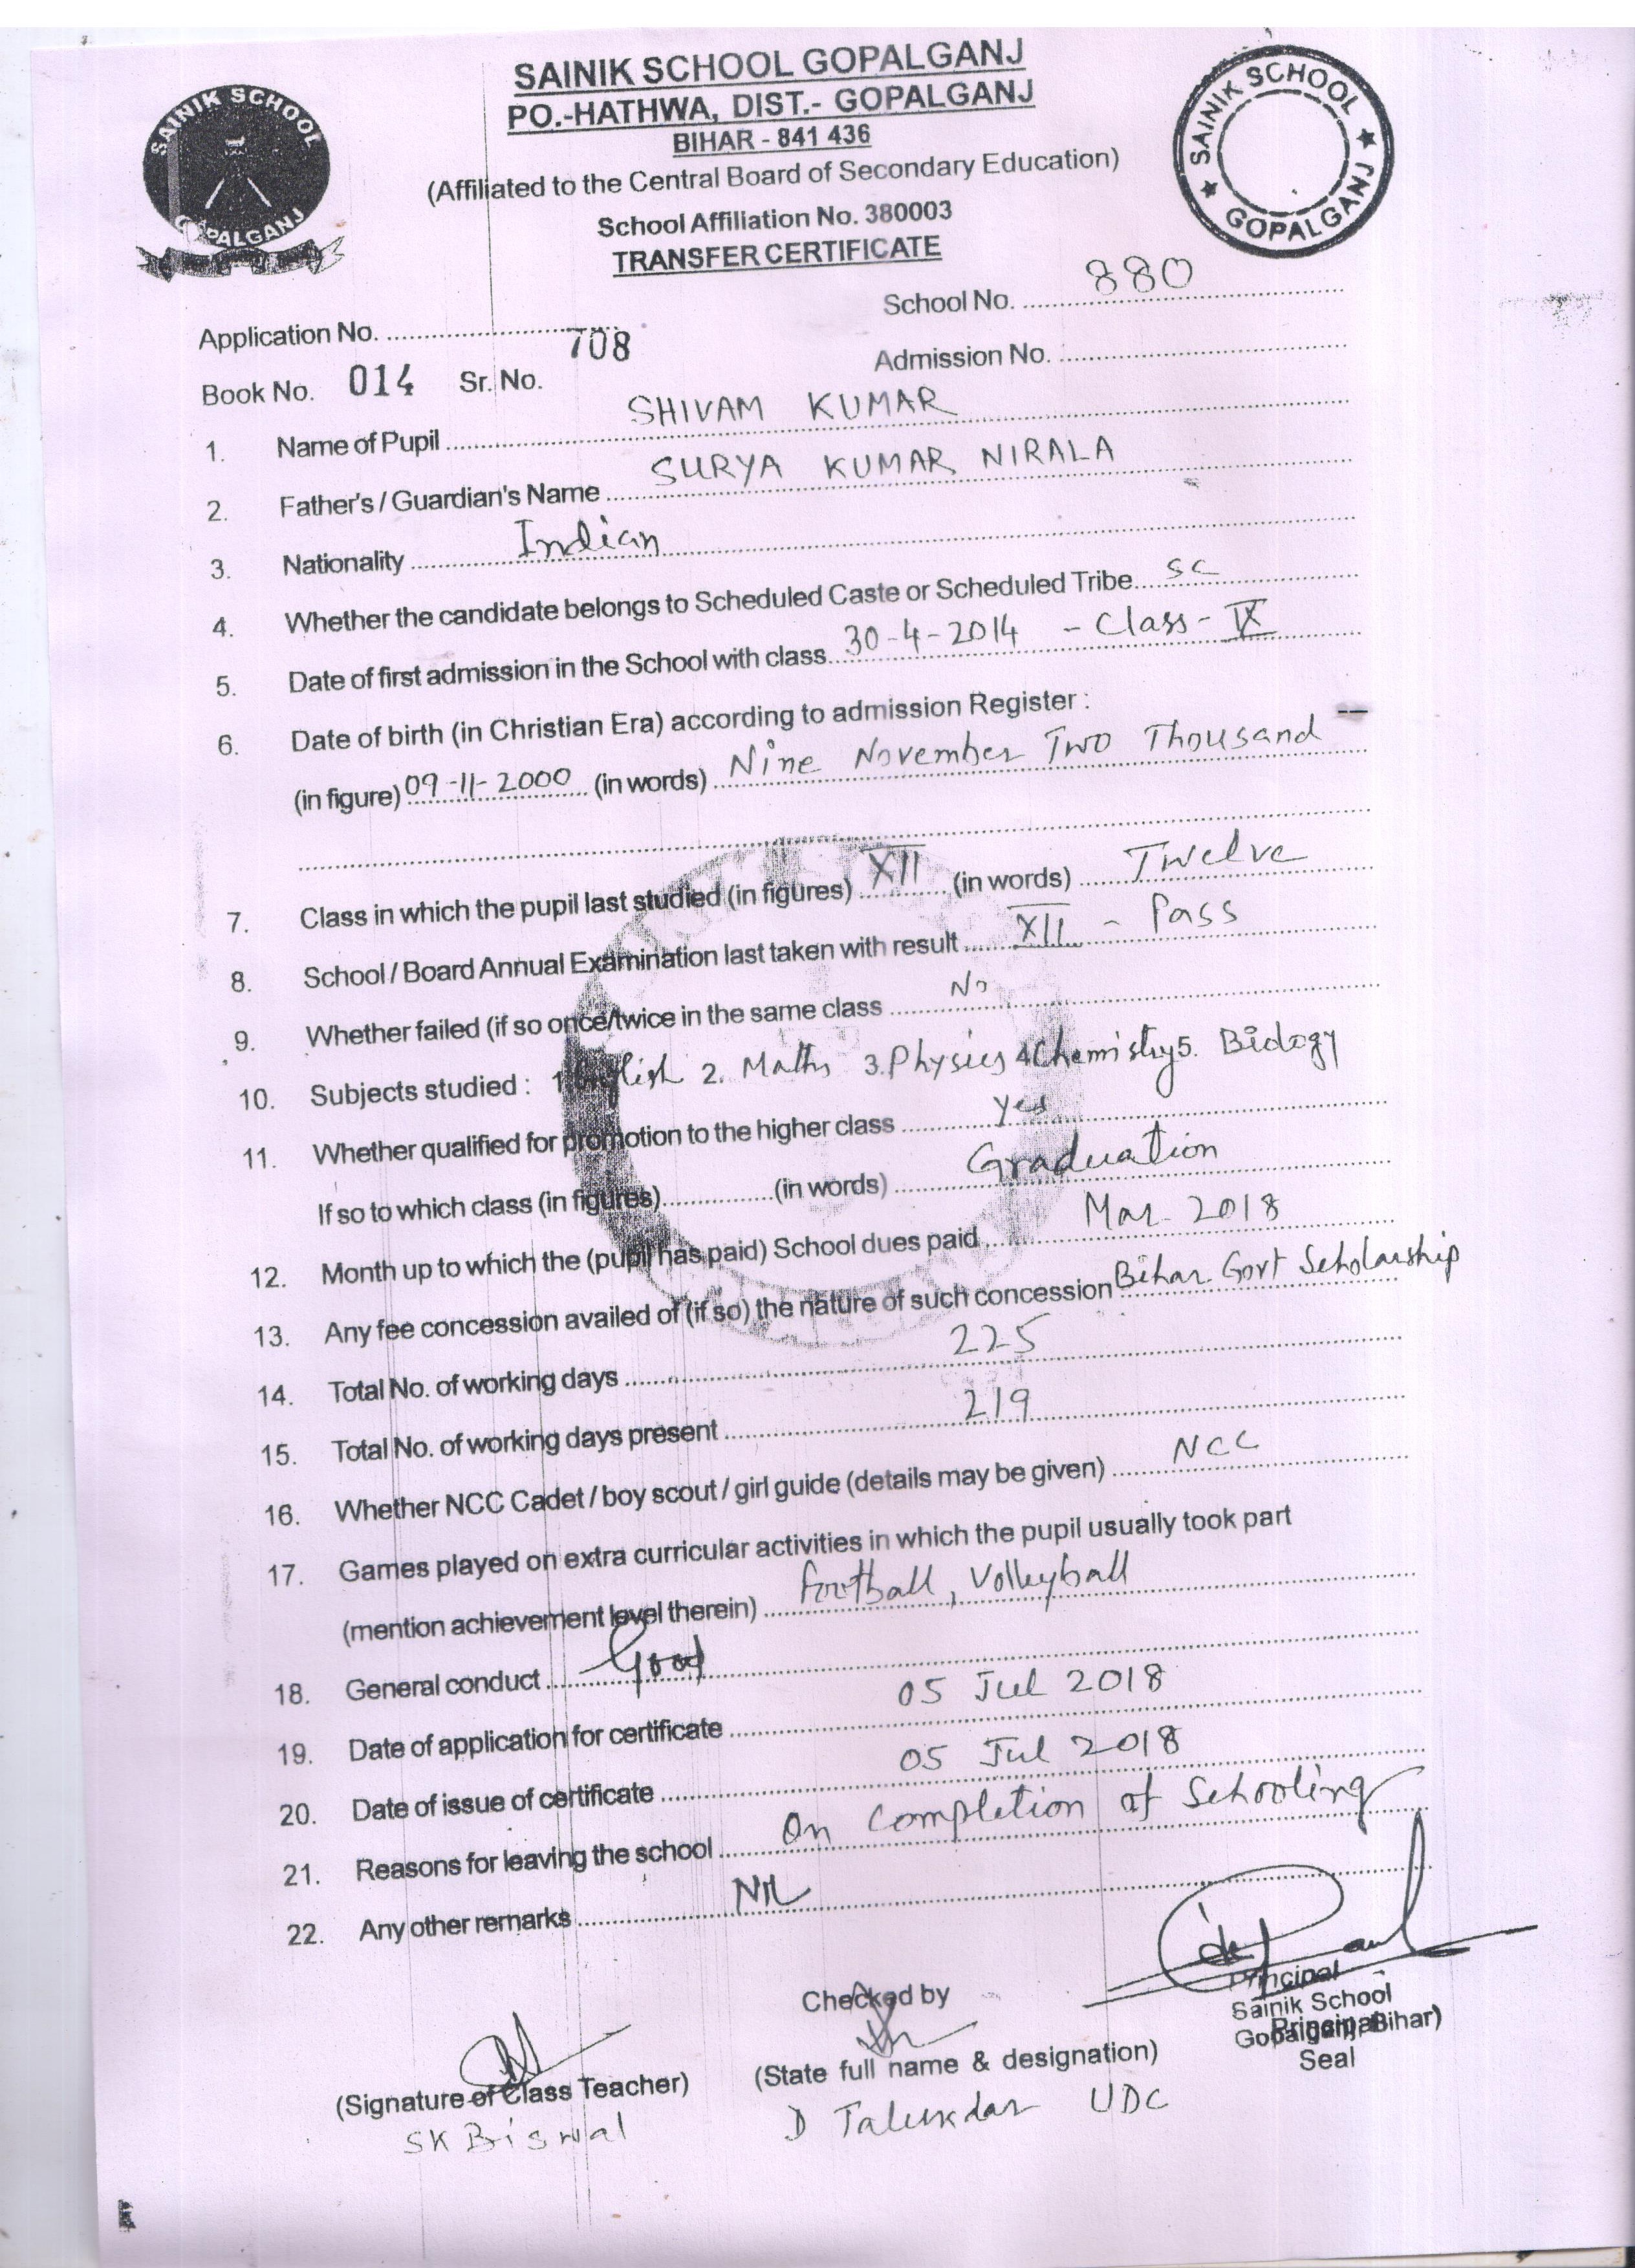 SAINIK SCHOOL GOPALGANJ
PO.-HATHWA, DIST.- GOPALGANJ
BIHAR - 841 436
(Affiliated to the Central Board of Secondary Education)
School Affiliation No. 380003
TRANSFER CERTIFICATE
SAINIK SCHOOL
GOPALGANJ
★ SAINIK SCHOOL ★
GOPALGANJ
School No. 880
Application No.
Admission No.
Book No. 014 Sr. No. 708
1. Name of Pupil SHIVAM KUMAR
2. Father's / Guardian's Name SURYA KUMAR NIRALA
3. Nationality Indian
4. Whether the candidate belongs to Scheduled Caste or Scheduled Tribe SC
5. Date of first admission in the School with class 30-4-2014 - Class - IX
6. Date of birth (in Christian Era) according to admission Register :
(in figure) 09-11-2000 (in words) Nine November Two Thousand
7. Class in which the pupil last studied (in figures) XII (in words) Twelve
8. School / Board Annual Examination last taken with result XII - Pass
9. Whether failed (if so once/twice in the same class No
10. Subjects studied : 1. English 2. Maths 3. Physics 4 Chemistry 5. Biology
11. Whether qualified for promotion to the higher class Yes
If so to which class (in figures) (in words) Graduation
12. Month up to which the (pupil has paid) School dues paid Mar. 2018
13. Any fee concession availed of (if so) the nature of such concession Bihar Govt Scholarship
14. Total No. of working days 225
15. Total No. of working days present 219
16. Whether NCC Cadet / boy scout / girl guide (details may be given) NCC
17. Games played on extra curricular activities in which the pupil usually took part
(mention achievement level therein) Football, Volleyball
18. General conduct Good
19. Date of application for certificate 05 Jul 2018
20. Date of issue of certificate 05 Jul 2018
21. Reasons for leaving the school On completion of Schooling
22. Any other remarks NIL
Checked by
Principal
Sainik School
Gopalganj (Bihar)
Principal
Seal
(Signature of Class Teacher)
(State full name & designation)
SK Biswal
D Talukdar UDC